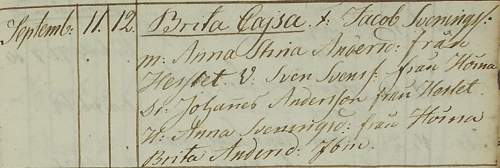 Septemb: 11. 12. Brita Cajsa f: Jacob Sveningss:
m: Anna Stina Anderd: från
Hestet. V. Sven Svenss: från Hörna
Dr. Johanes Andersson från Hestet.
H: Anna Sveningsd: från Hörna
Brita Anderd: Ibm.